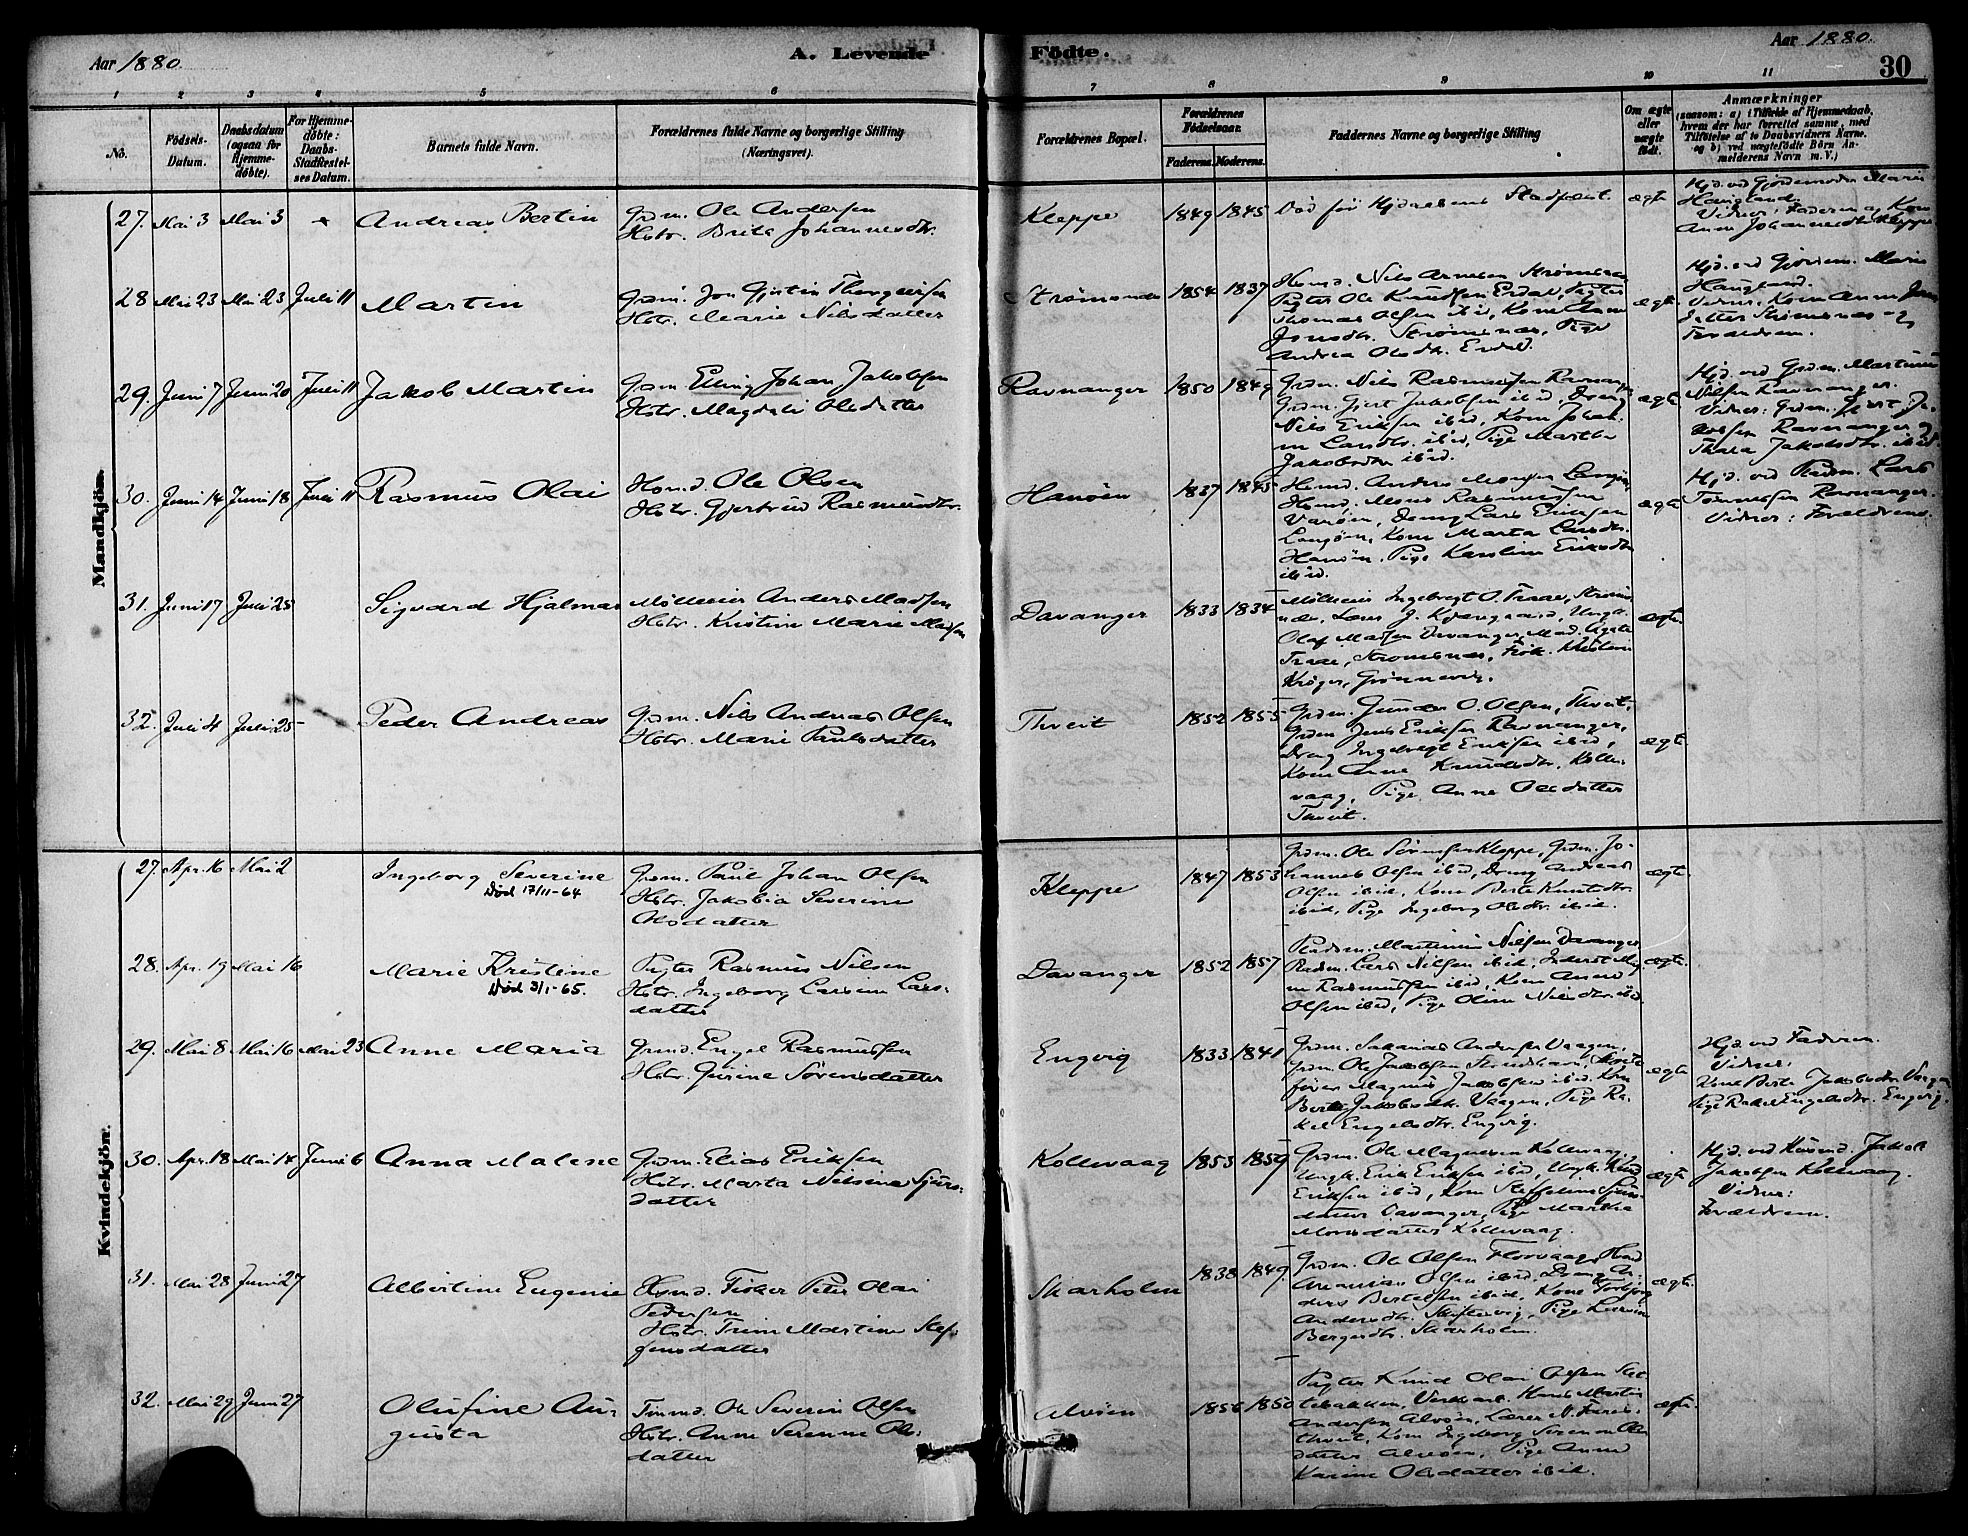 Aar 1880.
A. Levende
Födte.
Aar 1880.
30
1 2 3 4 5 6 7 8 9 10 11
No.
Födsels-
Datum.
Daabsdatum
(ogsaa for
Hjemme-
döbte).
For Hjemme-
döbte:
Daabs-
Stadfæstel-
ses Datum.
Barnets fulde Navn.
Forældrenes fulde Navne og borgerlige Stilling
(Næringsvei).
Forældrenes Bopæl.
Forældrenes
Födselsaar.
Faderens. Moderens.
Faddernes Navne og borgerlige Stilling
Om ægte
eller
uægte
født.
Anmærkninger
(saasom: a) i Tilfælde af Hjemmedaab,
hvem der har forrettet samme, med
Tilföielse af to Daabsvidners Navne,
og b) ved uægtefödte Börn An-
melderens Navn m. V.)
Mandkjön.
27. Mai 3 Mai 3
Andreas Bertin
Grdm. Ole Andersen
Hstr. Brita Johannesdtr.
Kleppe
1849 1845
Død før Hjdaabens Stadfæst.
ægte
Hjd. ved Gjordemoder Marie
Haugland.
Vidner: Faderen og Kone
Anna Johannesdtr Kleppe.
28 Mai 23 Mai 23 Juli 11
Martin
Hstr. Marie Nilsdatter
1854 1837
Husmd. Nils Arnesen
Pagter Ole Knudsen Erdal, Pagter
Thomas Olsen ibid, Kone Anne
Jonsdtr. Strømsnæs, Pige
Andrea Olsdtr. Erdal.
ægte
Hjd. ved Gjordem. Marie
Haugland.
Vidner: Kone Anne
datter Strømsnæs og
Forældrene.
29. Juni 7 Juni 20 Juli 11
Jakob Martin
Grdm Elling Johan Jakobsen
Hstr. Magdali Olsdatter
Ravnanger
1850 1849
Grdm. Nils Rasmussen Ravnanger
Grdm. Gjert Jakobsen ibid, Dreng
Nils Eriksen ibid, Kone Johan-
ne Larsdtr. ibid, Pige Martha
Jakobsdtr ibid.
ægte
Hjd. ved Grdm. Martinus
Nilsen Ravnanger.
Vidner: Grdm. Gjert Ja-
kobsen Ravnanger og
Thala Jakobsdtr. ibid.
30. Juni 14 Juni 18 Juli 11
Rasmus Olai
Husmd Ole Olsen
Hstr. Gjertrud Rasmusdtr.
Hanøen
1837 1845
Husmd. Anders Monsen
Husmd. Mons Rasmussen
Dreng Lars Eriksen
Langøen, Kone Marta Larsdtr.
Hanøen, Pige Karoline Eriksdtr
ibid.
ægte
Hjd. ved Pladsm. Lars
Tommesen Ravnanger.
Vidner: Forældrene.
31. Juni 17 Juli 25
Sigvard Hjalmar
Mølleeier Anders Madsen
Hstr. Kristine Marie Madsen
Davanger
1833 1834
Mølleeier Ingebregt O. Traae, Strøms-
næs, Lærer J. Kjærgaard, Ungk.
Olaf Madsen Davanger, Mad. Agate
Traae, Strømsnæs, Frøk.
Krøger, Grønnevig.
ægte
32. Juli 4 Juli 25
Peder Andreas
Grdm. Nils Andreas Olsen
Hstr. Marie Paulsdatter
Thveit
1852 1855
Grdm. Gunder O. Olsen, Thveit,
Grdm Jens Eriksen Ravnanger,
Dreng Ingebregt Eriksen ibid,
Kone Anne Knudsdtr, Kolle-
vaag, Pige Anne Olsdatter
Thveit.
ægte
Kvindekjön.
27. Apr. 16 Mai 2
Ingeborg Severine
Død 17/11-64
Grdm. Paul Johan Olsen
Hstr. Jakobia Severine
Olsdatter
Kleppe
1847 1853
Grdm. Ole Sørensen Kleppe, Grdm. Jo-
hannes Olsen ibid, Dreng Andreas
Olsen ibid, Kone Berte Knutsdtr
ibid, Pige Ingeborg Olsdtr. ibid.
ægte
28. Apr. 19 Mai 16
Marie Kristine
Død 3/1-65.
Pagter Rasmus Nilsen
Hstr. Ingeborg Larsine Lars-
datter
Davanger
1852 1857
Pladsm. Martinus Nilsen Davanger
Pladsm. Lars Nilsen ibid,
Rasmussen ibid, Kone Anne
Olsen ibid, Pige Oline Nilsdtr ibid.
ægte
29. Mai 8 Mai 16 Mai 23
Anne Maria
Grmd. Engel Rasmussen
Hstr. Gurine Sørensdatter
Engvig
1833 1841
Grdm. Johannes Andersen Vaagen,
Grdm. Ole Jakobsen
Magnus Jakobsen ibid, Kone
Berte Jakobsdtr. Vaagen, Pige Ra-
kel Engelsdtr. Engvig.
ægte
Hjd. ved Faderen.
Vidner:
Kone Berte Jakobsdtr. Vaagen
Pige Rakel Engelsdtr. Engvig.
30. Apr. 18 Mai 14 Juni 6
Anna Malene
Grdm. Elias Eriksen
Hstr. Marta Nilsine Sjurs-
datter
Kollevaag
1853 1859
Grdm. Ole Magnesen Kollevaag,
Ungk. Erik Eriksen ibid, Ungk. Knud
Eriksen ibid, Kone Steffeline Sjurs-
datter Davanger, Pige Martha
Monsdatter Kollevaag.
ægte
Hjd. ved Husmd. Jakob
Jakobsen Kollevaag.
Vidner:
Forældrene.
31. Mai 28 Juni 27
Albertine Eugenie
Husmd. Fisker Peter Olai
Pedersen
Hstr. Trine Martine Stef-
fensdatter
Skarholm
1838 1849
Grdm. Ole Olsen Florvaag, Husmd
Olsen ibid, Dreng An-
ders Bertelsen ibid, Kone Torbjørg
Andersdtr. Skiftesvig, Pige
Bergesdtr. Skarholm.
ægte
32. Mai 29 Juni 27
Olufine Au-
gusta
Tommd. Ole Severin Olsen
Hstr. Anne Serenne Ols-
datter
Alvøen
1856 1850
Pagter Knud Olai Olsen Slet-
tebakken, Verkkarl. Hans Martin
Andersen Alvøen, Lærer N.
Kone Ingeborg Serenne Ols-
datter Alvøen, Pige Anne
Karine Olsdatter ibid.
ægte